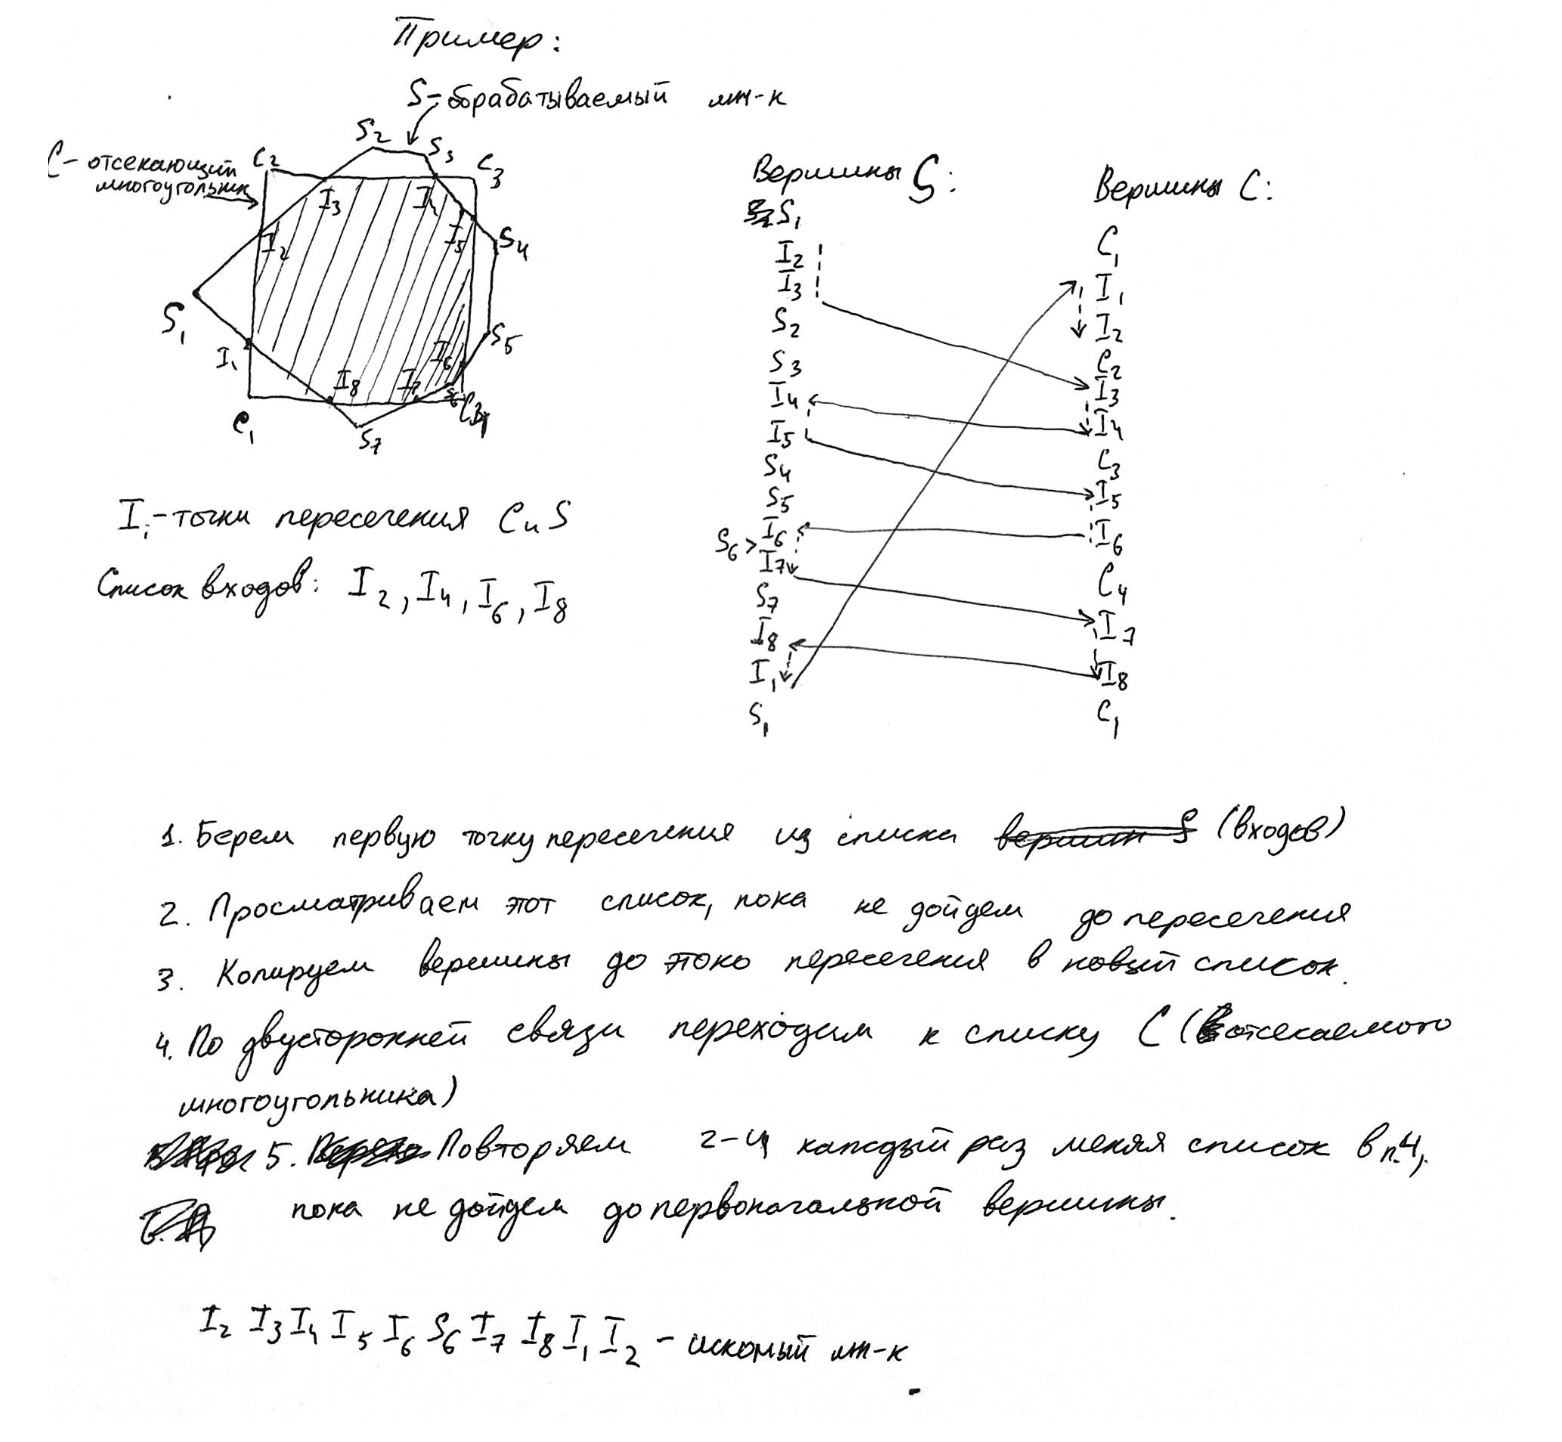 Пример:
S - обрабатываемый мн-к
C - отсекающий
многоугольник
C2
S2
S3
C3
I3
I4
I2
I5
S4
S1
I1
I8
I7
I6
S5
S6
C4
C1
S7
Ii - точки пересечения C и S
Список входов: I2, I4, I6, I8
Вершины S:
S1
I2
I3
S2
S3
I4
I5
S4
S5
I6
S6 >
I7
S7
I8
I1
S1
Вершины C:
C1
I1
I2
C2
I3
I4
C3
I5
I6
C4
I7
I8
C1
1. Берем первую точку пересечения из списка вершин S (входов)
2. Просматриваем этот список, пока не дойдем до пересечения
3. Копируем вершины до этоко пересечения в новый список.
4. По двусторонней связи переходим к списку C (отсекаемого
многоугольника)
5. Повторяем 2-4 каждый раз меняя список в п.4,
пока не дойдем до первоначальной вершины.
I2 I3 I4 I5 I6 S6 I7 I8 I1 I2 - искомый мн-к